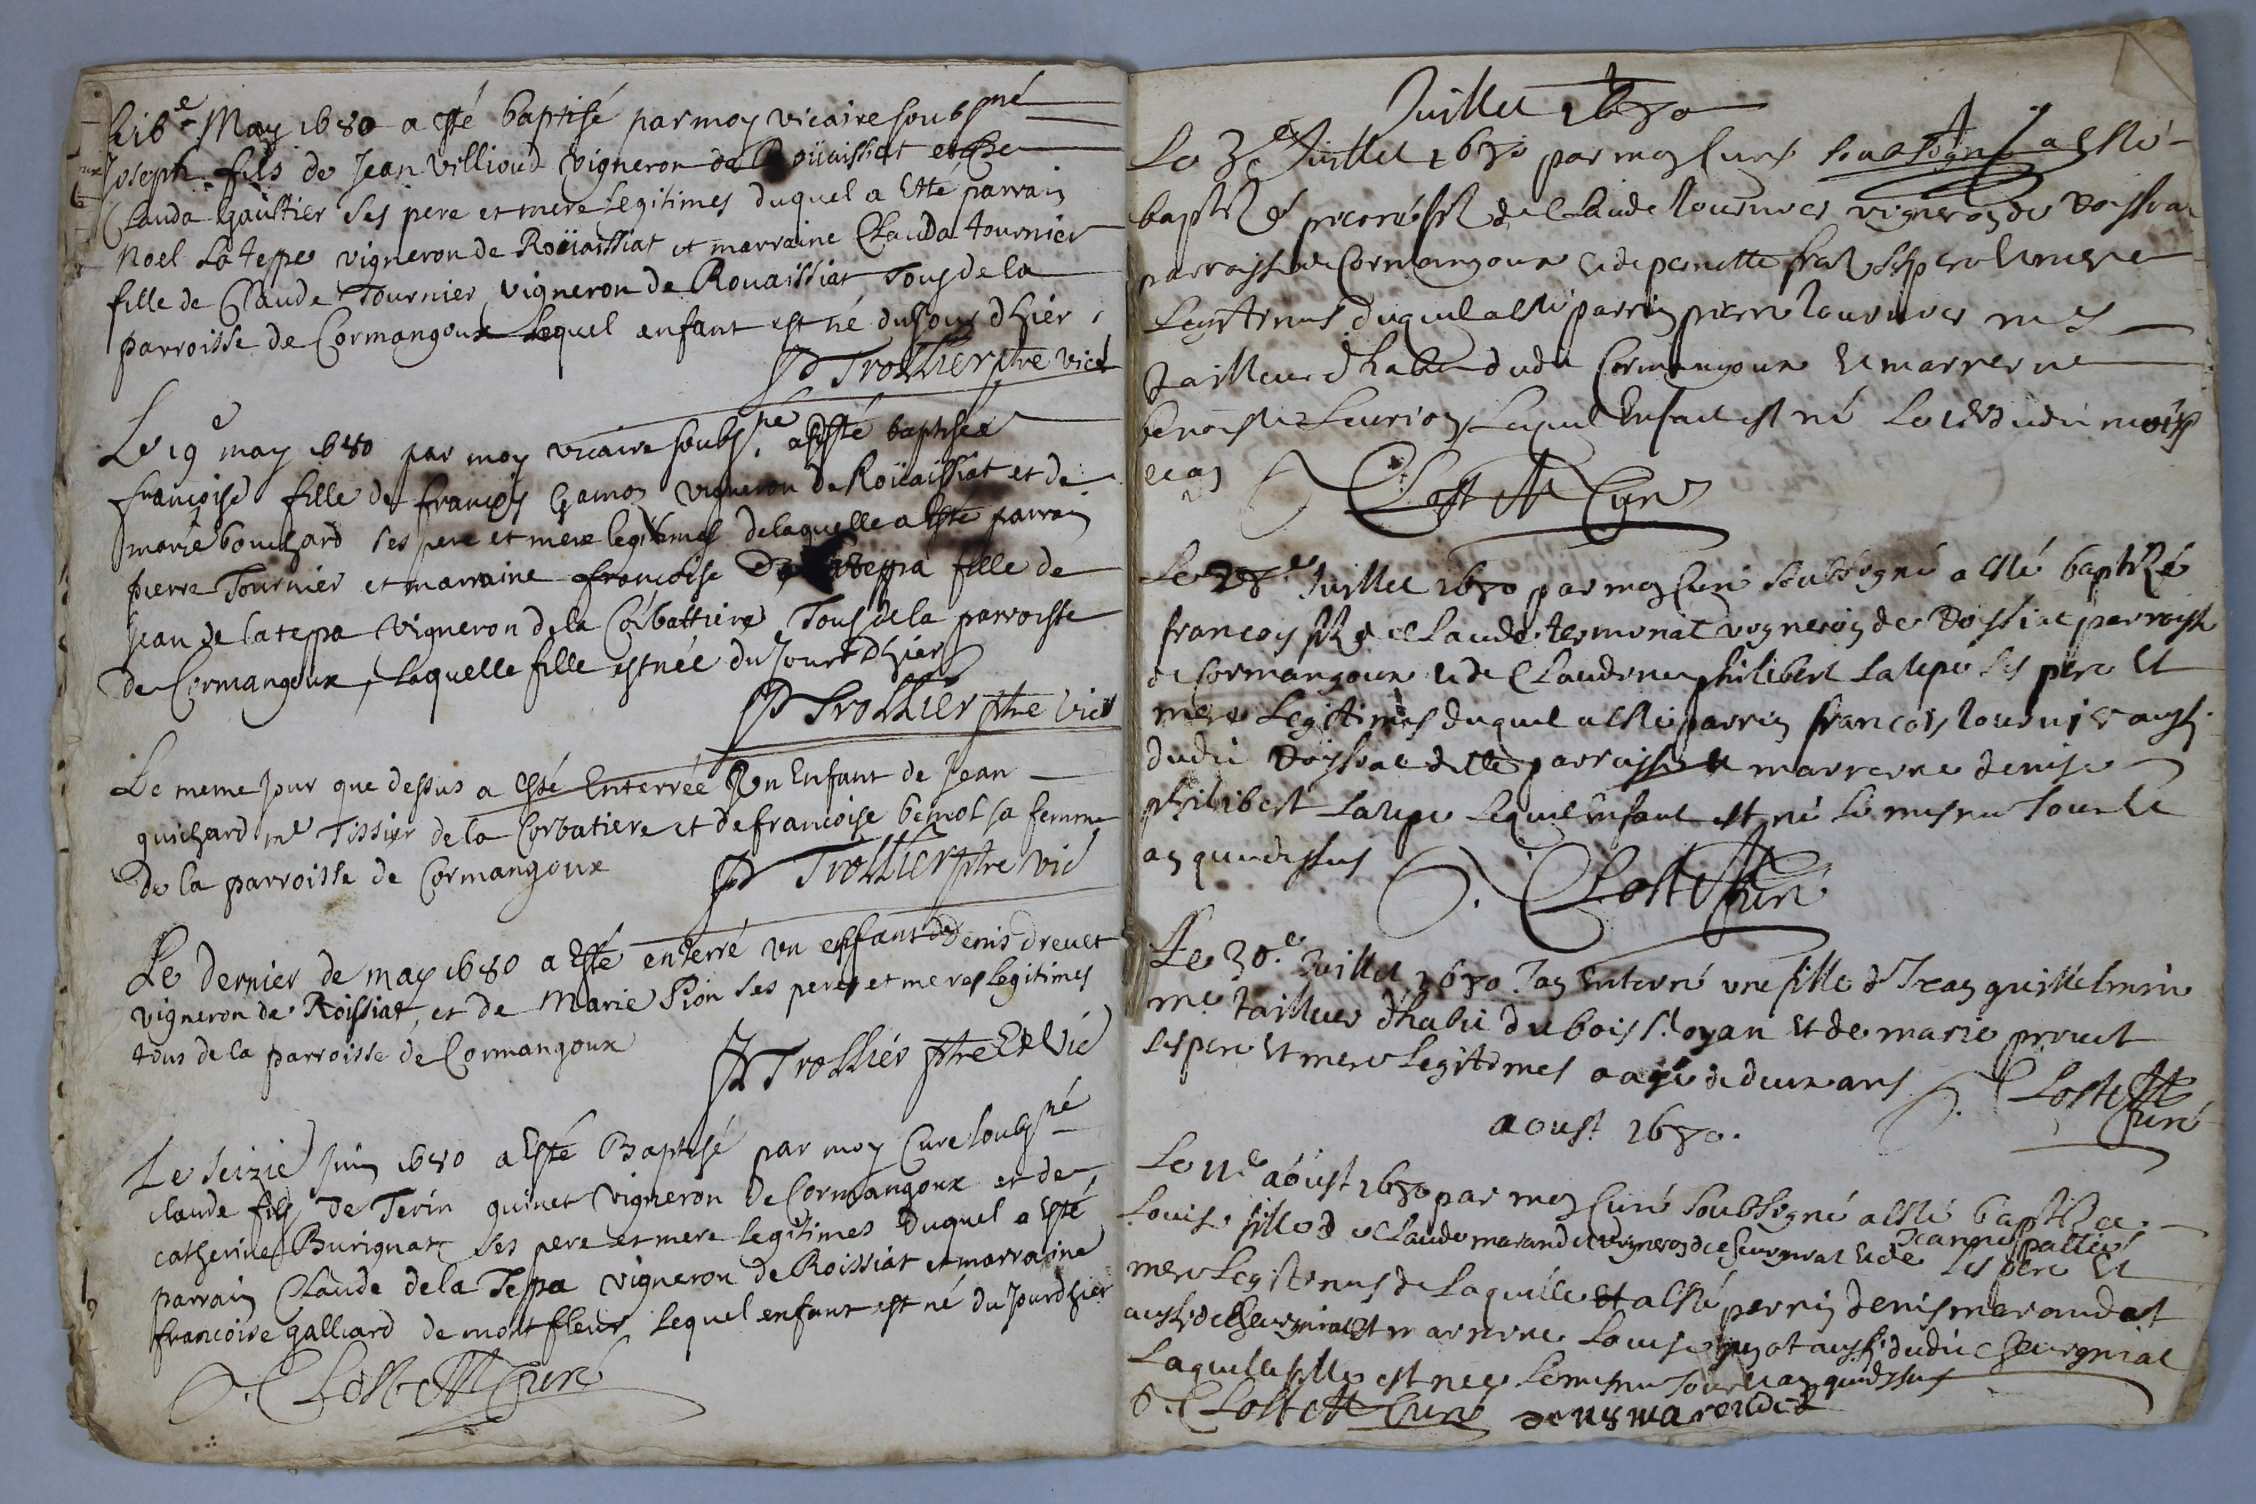 Le 16.e May 1680 a esté baptisé par moy vicaire soubsné
Joseph fils de Jean Villioud vigneron de Roüaissiat et de
Clauda Gaultier ses pere et mere legitimes duquel a esté parrain
Noel La teppe vigneron de Roüaissiat et marraine Clauda tournier
fille de Claude Tournier vigneron de Rouaissiat Tous de la
parroisse de Cormangoux Lequel enfant est né du Jour dhier
Trollier ptre vic
Le 19e may 1680 par moy vicaire soubsné a esté baptisée
françoise fille de françois Gamon vigneron de Roüaissiat et de
marie bouchard ses pere et mere legitimes delaquelle a esté parrain
pierre Tournier et marraine françoise De la teppa fille de
Jean de la teppa vigneron de la Corbattiere Tous de la parroisse
de Cormangoux, Laquelle fille est née du Jour dhier
Trollier ptre vic
Le meme jour que dessus a esté Enterrée Un Enfant de Jean
guichard me Tissier de la Corbatiere et de francoise bemol sa femme
De la parroisse de Cormangoux
Trollier ptre vic
Le dernier de may 1680 a esté enterré un enfant de Denis dreuet
vigneron de Roissiat, et de Marie Pion ses peres et meres legitimes
tous de la parroisse de Cormangoux
Trollier ptre Et vic
Le seizie Juin 1680 a esté Baptisé par moy Cure soubsné
claude fils De Tevin quinet vigneron de Cormangoux et de
catherine Burignat ses pere et mere legitimes Duquel a esté
parrain Claude de la Teppa vigneron de Roissiat et marraine
francoise galliard de montfleur Lequel enfant est né du Jour dhier
Curé
Juillet 1680
Le 3e Juillet 1680 par moy Curé soubsigné a esté
baptisé pierre filz de Claude tournier vigneron de Roissiat
parroisse de Cormangoux et de pernette ses pere et mere
Legitimes duquel a esté parrin pierre tournier me
tailleur dhabit dudit Cormangoux et marrerne
benoiste Lequel Enfant est né le dudit mois
et an
Curé
Le 28.e Juillet 1680 par moy Curé soubsigné a esté baptizé
francoys filz de Claude vigneron de Roissiat parroisse
de Cormangoux et de Claudine philibert Latepe ses pere et
mere Legitimes duquel a esté parrin francois tournier aussy
dudit Roissiat ditte parroisse et marrerne denise
philibert Latepe Lequel enfant est né le mesme Jour et
an que dessus
Curé
Le 30.e Juillet 1680 Jay enterré une fille de Jean guillelmin
me. tailleur dhabit du bois St oyan et de marie prouet
ses pere et mere Legitimes aagée de deux ans
Curé
aoust 1680.
Le 11e aoust 1680 par moy Curé soubsigné a esté baptizée
Louise fille de Claude marandet vigneron de et de Jeanne ses pere et
mere Legitimes de Laquelle a esté perrin denis marandet
aussy de et marrerne Louise aussy dudit
Laquelle fille est nee le mesme Jour et an que dessus
Curé denis marendet